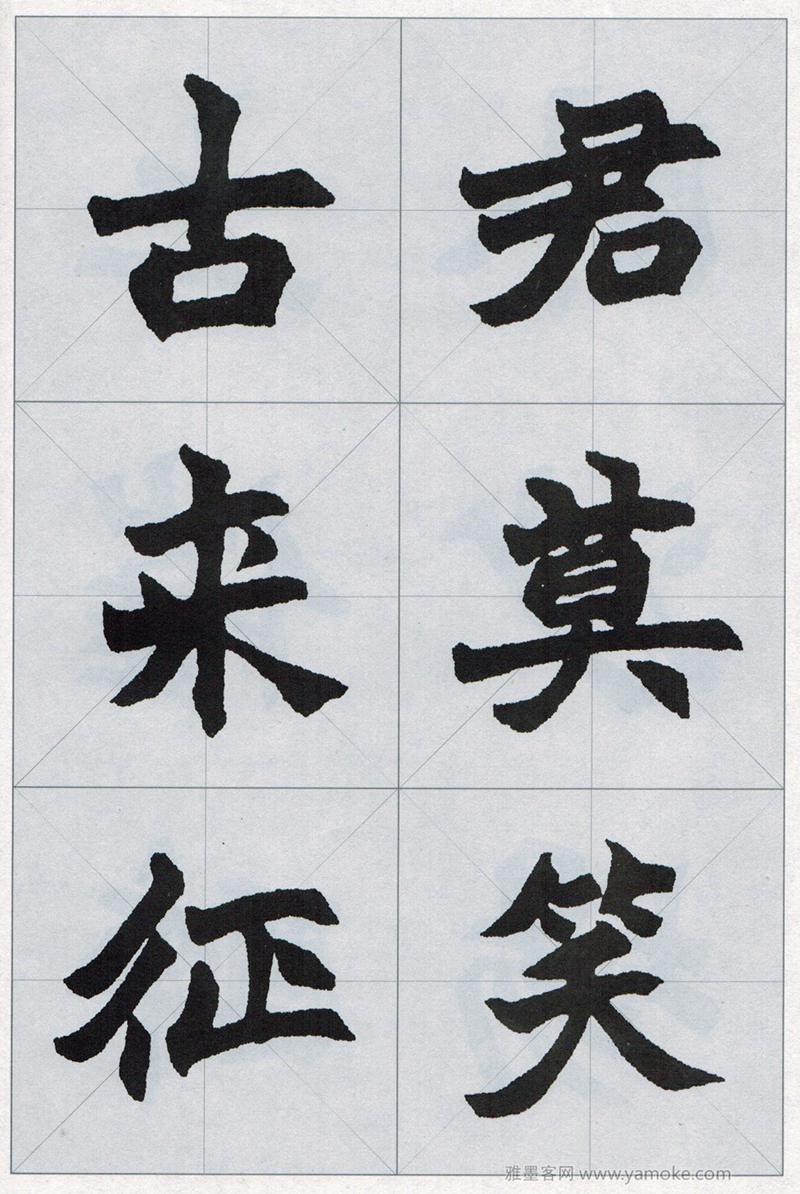 君莫笑
古来征
雅墨客网 www.yamoke.com